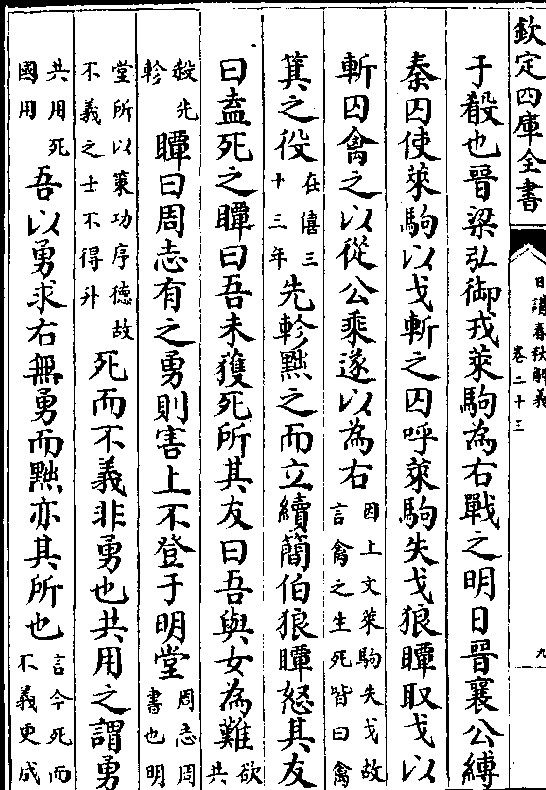 欽定四庫全書
日講春秋解義 卷二十三
九
于殽也晉梁弘御戎萊駒為右戰之明日晉襄公縛
秦囚使萊駒以戈斬之囚呼萊駒失戈狼瞫取戈以
斬囚禽之以從公乘遂以為右因上文萊駒失戈故言禽之生死皆曰禽
箕之役在僖三十三年先軫黜之而立續簡伯狼瞫怒其友
曰盍死之瞫曰吾未獲死所其友曰吾與女為難欲共
殺先軫瞫曰周志有之勇則害上不登于明堂周志周書也明
堂所以策功序德故不義之士不得升死而不義非勇也共用之謂勇
共用死國用吾以勇求右無勇而黜亦其所也言今死而不義更成